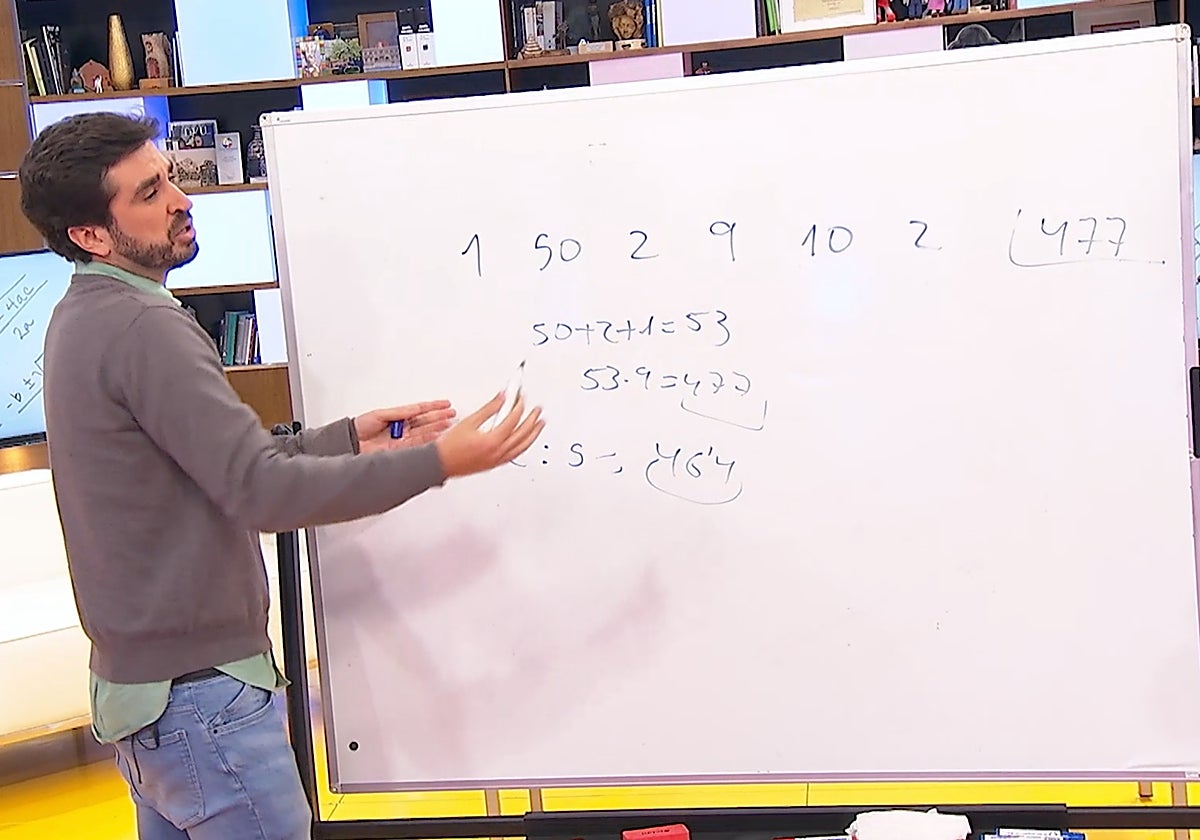 1 50 2 9 10 2 477
50+2+1=53
53·9=477
: 5 464
- 4ac
2a
-b ±